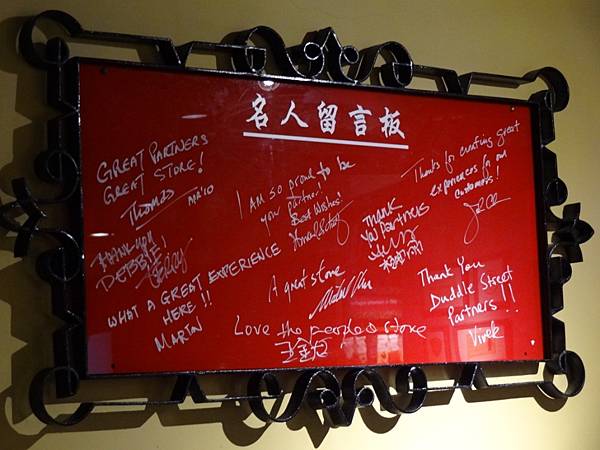 名人留言板
GREAT PARTNERS
GREAT STORE!
Thomas
APR'10
I AM SO proud to be
your partner!
Best Wishes!
Thanks for creating great
experiences for our
customers!
THANK YOU
DEBBIE
Thank
You Partners
WHAT A GREAT EXPERIENCE
HERE!!
MARTIN
A great store
Thank You
Duddle Street
Partners!!
Vivek
Love the people & store
王金龙